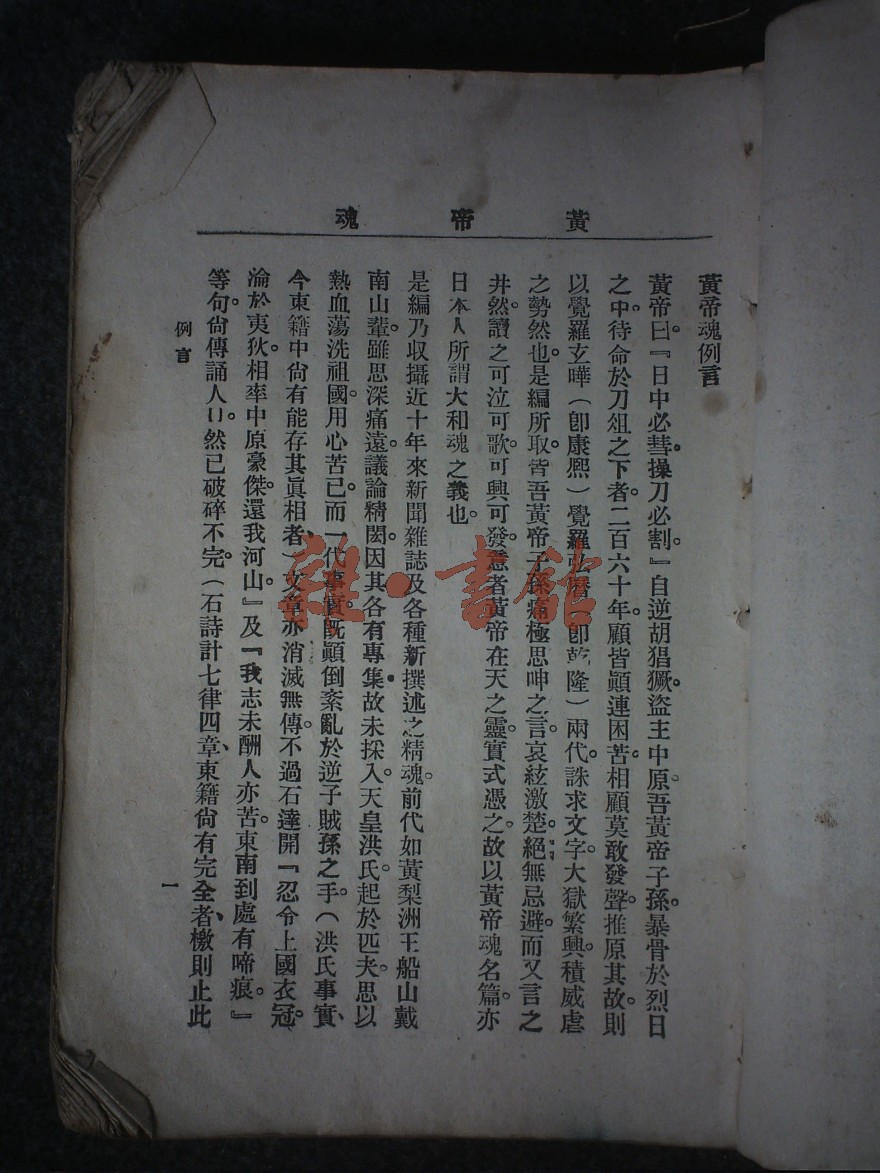 黃帝魂
黃帝魂例言
黃帝曰。『日中必彗。操刀必割。』自逆胡猖獗。盜主中原。吾黃帝子孫。暴骨於烈日
之中。待命於刀俎之下者。二百六十年。顧皆顚連困苦。相顧莫敢發聲。推原其故。則
以覺羅玄曄（卽康熙）覺羅弘曆（卽乾隆）兩代。誅求文字。大獄繁興。積威虐
之勢然也。是編所取。皆吾黃帝子孫痛極思呻之言。哀絃激楚。絕無忌避。而又言之
井然。讀之可泣可歌。可興可發。意者黃帝在天之靈。實式憑之。故以黃帝魂名篇。亦
日本人所謂大和魂之義也。
是編乃收攝近十年來新聞雜誌及各種新撰述之精魂。前代如黃梨洲王船山戴
南山輩。雖思深痛遠。議論精閎。因其各有專集。故未採入。天皇洪氏。起於匹夫。思以
熱血蕩洗祖國。用心苦已。而一代事實。旣顚倒紊亂於逆子賊孫之手。（洪氏事實、
今東籍中尙有能存其眞相者、）文章亦消滅無傳。不過石達開『忍令上國衣冠。
淪於夷狄。相率中原豪傑。還我河山。』及『我志未酬人亦苦。東南到處有啼痕。』
等句。尙傳誦人口。然已破碎不完。（石詩計七律四章、東籍尙有完全者、檄則止此
例言
一
雜·書館